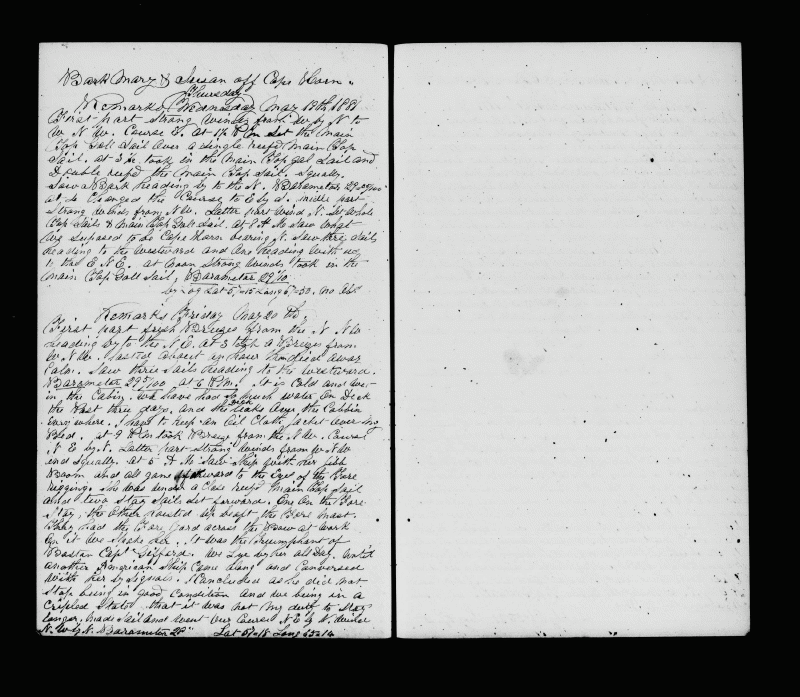 Bark Mary & Susan off Cape Horn.
Thursday
Remarks Wednesday May 19th 1881
First part strong winds from W by N to
W N W. Course E. at 1 1/2 P m Set the Main
Top Gall Sail over a single reefd Main Top
Sail. at 3 took in the Main Top gal Sail and
Double reefd the main Top Sail. Squally.
Saw a Bark heading by to the N. Barameter 29
at 4 Changed the Course to E by S. midle part
strong winds from N W. Latter part Wind N. Set whole
Top Sails & Main Top Gall Sail. at 8 A M Saw what
we suposed to be Cape Horn bearing N. Saw three Sails
heading to the westward and One heading with us
to the E N E. at noon Strong winds took in the
main Top Gall Sail. Barameter 29
by Log Lat no Obs
Remarks Friday May 20 th
First part fresh Breeze from the N NW
heading by to the N E. at 3 took a Breeze from
W N W. lasted about an hour then died away
Calm. Saw three Sails heading to the westward.
Barameter 29 at 6 P.M. It is Cold and wet
in the Cabin. we have had so much water On Deck
the Past three days. and the Deck leaks Over the Cabbin
Every where. I have to keep an Oil Cloth Jacket over my
Bed. at 9 P m took Breeze from the N W. Course
N E by N. Latter part strong winds from W N W
and Squally. at 5 A M Saw Ship with her Jib
Boom and all gone forward to the Eyes of the Fore
rigging. She was under a Close reefd Main Top Sail
and two Stay Sails Set forward. One On the Fore
Stay, the Other hoisted up abaft the Fore Mast.
They had the Fore yard across the Bow at work
On it We Spoke her. It was the Triumphant of
Bostan Capt We Lye by her all Day. until
another American Ship Came along and Conversed
with her by Signals. I Concluded as he did not
Stop being in good Condition and we being in a
Cripled State that it was not my duty to Stay
Longer, made Sail and went Our Course N E by N. Winds
N. W by N. Barameter 29 Lat Long